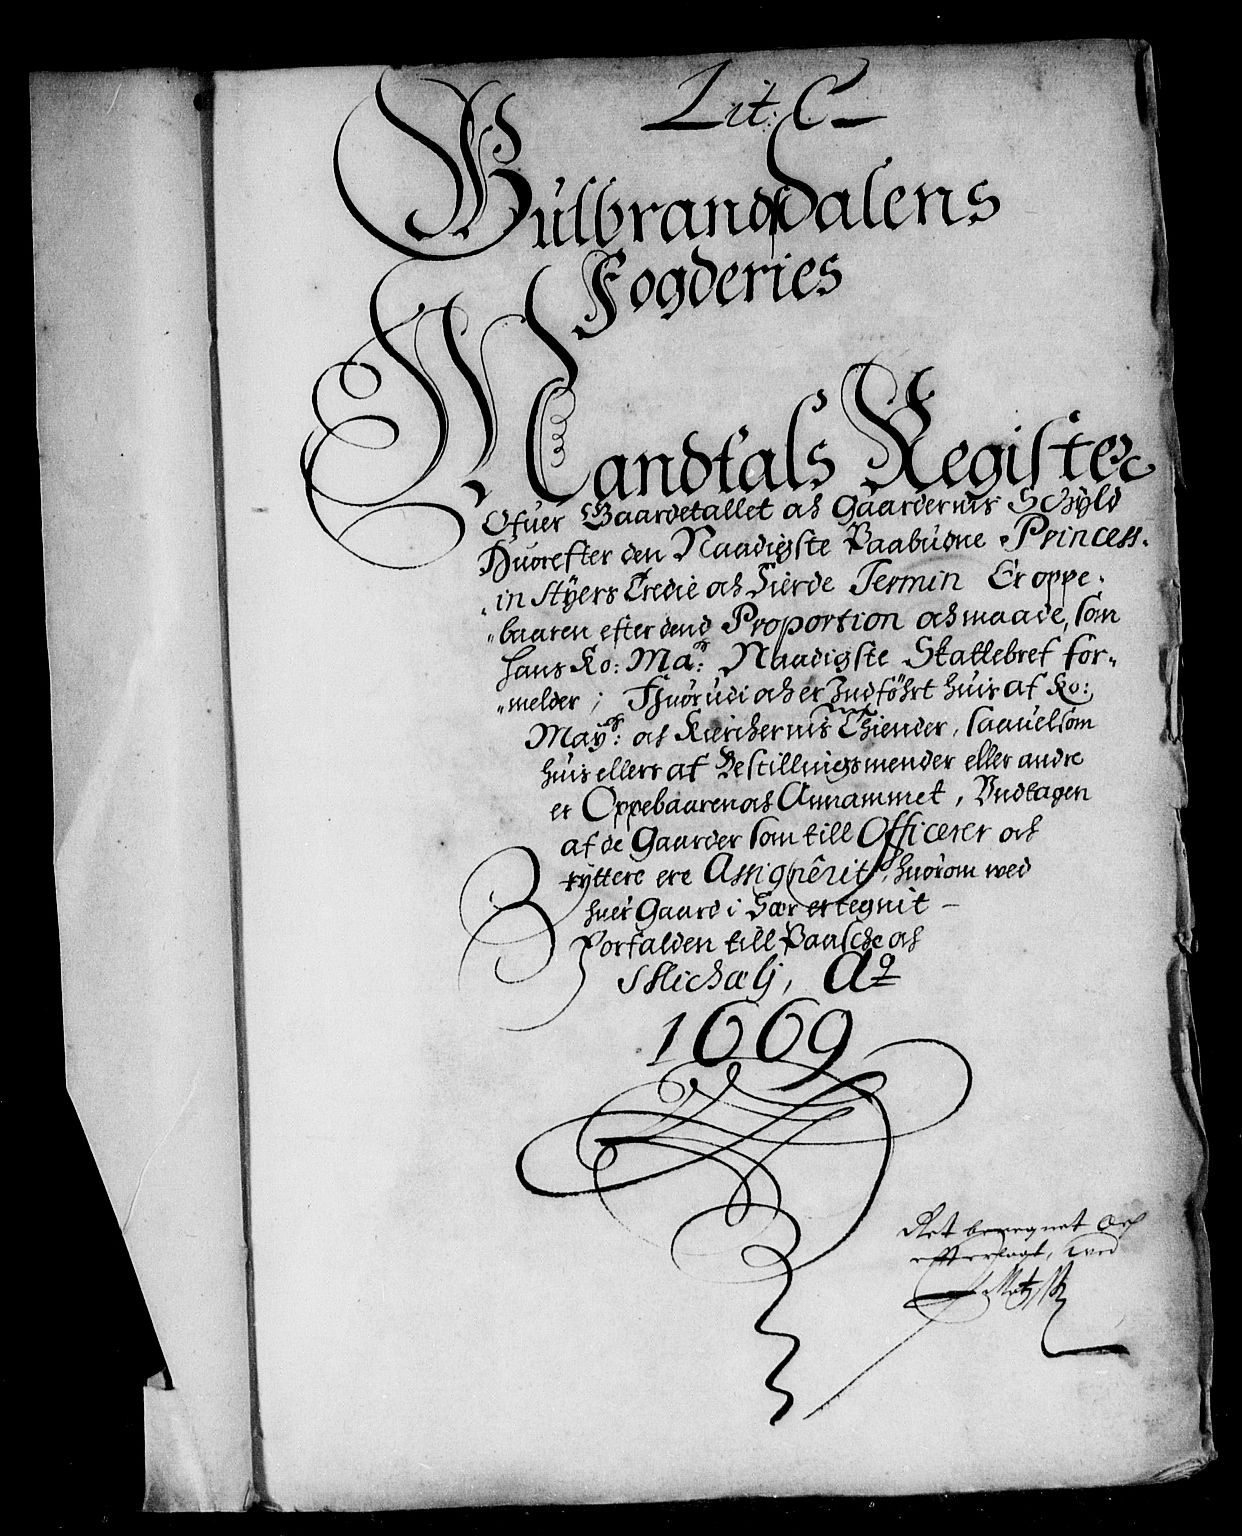 Lit: C
Gulbrandsdalens
Fogderies
Mandtals Register
Ofuer Gaardetallet och Gaardernis Schyld
Huorefter den Naadigste Paabudne Princess-
in Styers Tredie och Fierde Termin Er oppe-
baaren efter dend Proportion och maade, som
hans Ko: Maÿs: Naadigste Skattebref for-
melder; Huorudi och er Indføhrt huis af Ko:
Mayts: och Kierchernis Thiender, saauelsom
huis ellers af Bestillingsmender eller andre
er Oppebaaren och Annammet, Undtagen
af de Gaarder som till Officerer och
ryttere ere Assignêrit, huorom wed
huer Gaard i Sær er tegnit
Forfalden till Paasche och
Michælj, Ao
1669
Ret beregnet och
efterlagt, wed